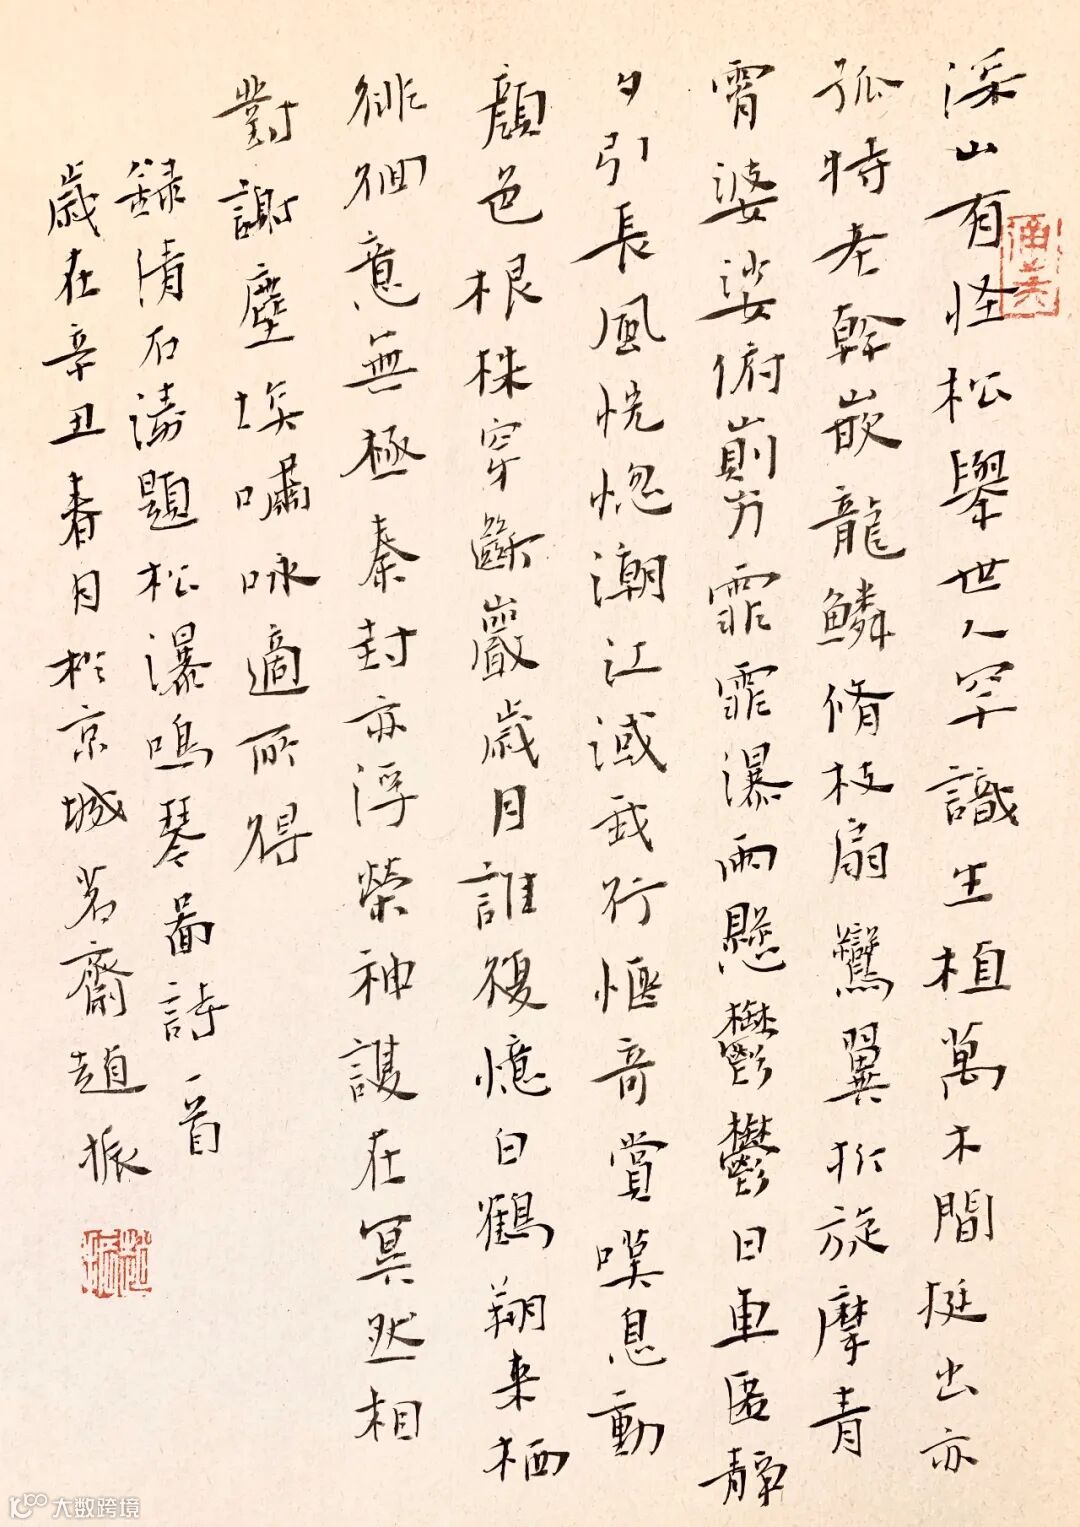 深山有怪松舉世人罕識生植萬木間挺出亦
孤特老幹嵌龍鱗脩枝扇鸞翼於旋摩青
霄婆娑俯崱屴霏霏瀑雨懸鬱鬱日車匿靜
夕引長風恍惚潮江淢我行愜奇賞嘆息動
顏色根株穿斷巖歲月誰復憶白鶴翔來栖
徘徊意無極秦封亦浮榮神護在冥然相
對謝塵埃嘯咏適所得
錄清石濤題松瀑鳴琴圖詩一首
歲在辛丑春月於京城茗齋趙振
大数跨境